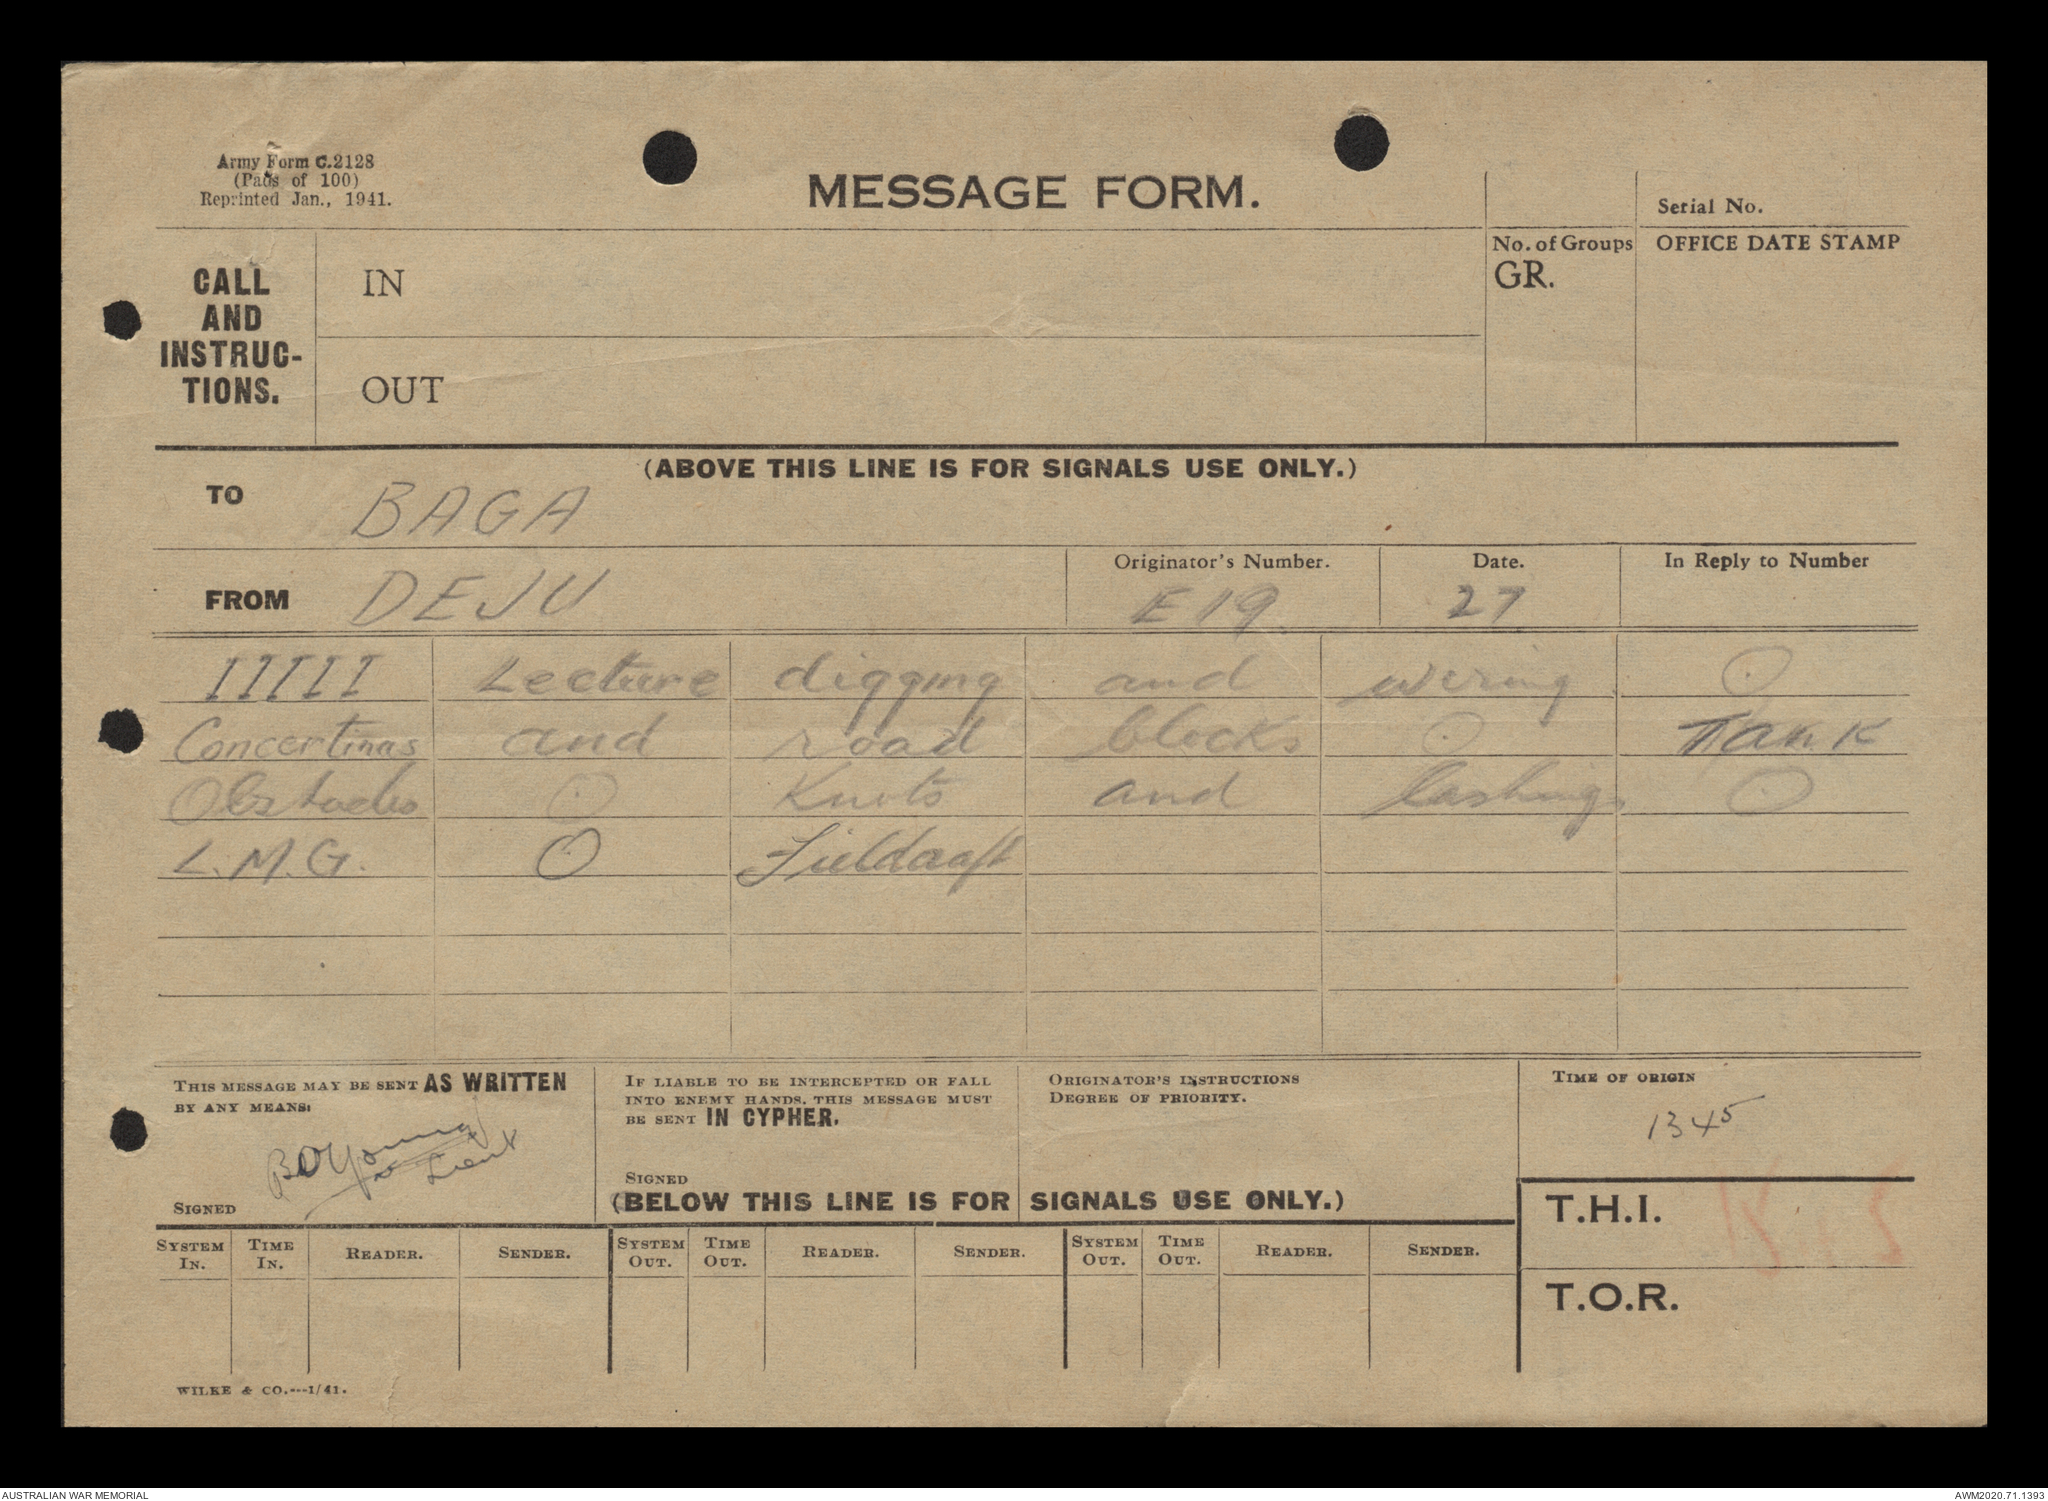 Army Form C.2128
(Pads of 100)
Reprinted Jan., 1941.
MESSAGE FORM.
Serial No.
CALL AND INSTRUC-TIONS.
IN
No. of Groups
GR.
OFFICE DATE STAMP
OUT
(ABOVE THIS LINE IS FOR SIGNALS USE ONLY.)
TO BAGA
FROM DEJU
Originator's Number. E19
Date. 27
In Reply to Number
IIIII Lecture digging and wiring O
Concertinas and road blocks O Tank
Obstacles O Knots and lashings O
L.M.G. O Fieldcraft
THIS MESSAGE MAY BE SENT AS WRITTEN
BY ANY MEANS:
Young
Lieut
SIGNED
IF LIABLE TO BE INTERCEPTED OR FALL
INTO ENEMY HANDS, THIS MESSAGE MUST
BE SENT IN CYPHER.
SIGNED
ORIGINATOR'S INSTRUCTIONS
DEGREE OF PRIORITY.
TIME OF ORIGIN
1345
(BELOW THIS LINE IS FOR SIGNALS USE ONLY.)
T.H.I.
SYSTEM IN. TIME IN. READER. SENDER. SYSTEM OUT. TIME OUT. READER. SENDER. SYSTEM OUT. TIME OUT. READER. SENDER.
T.O.R.
WILKE & CO.---1/41.
AUSTRALIAN WAR MEMORIAL
AWM2020.71.1393